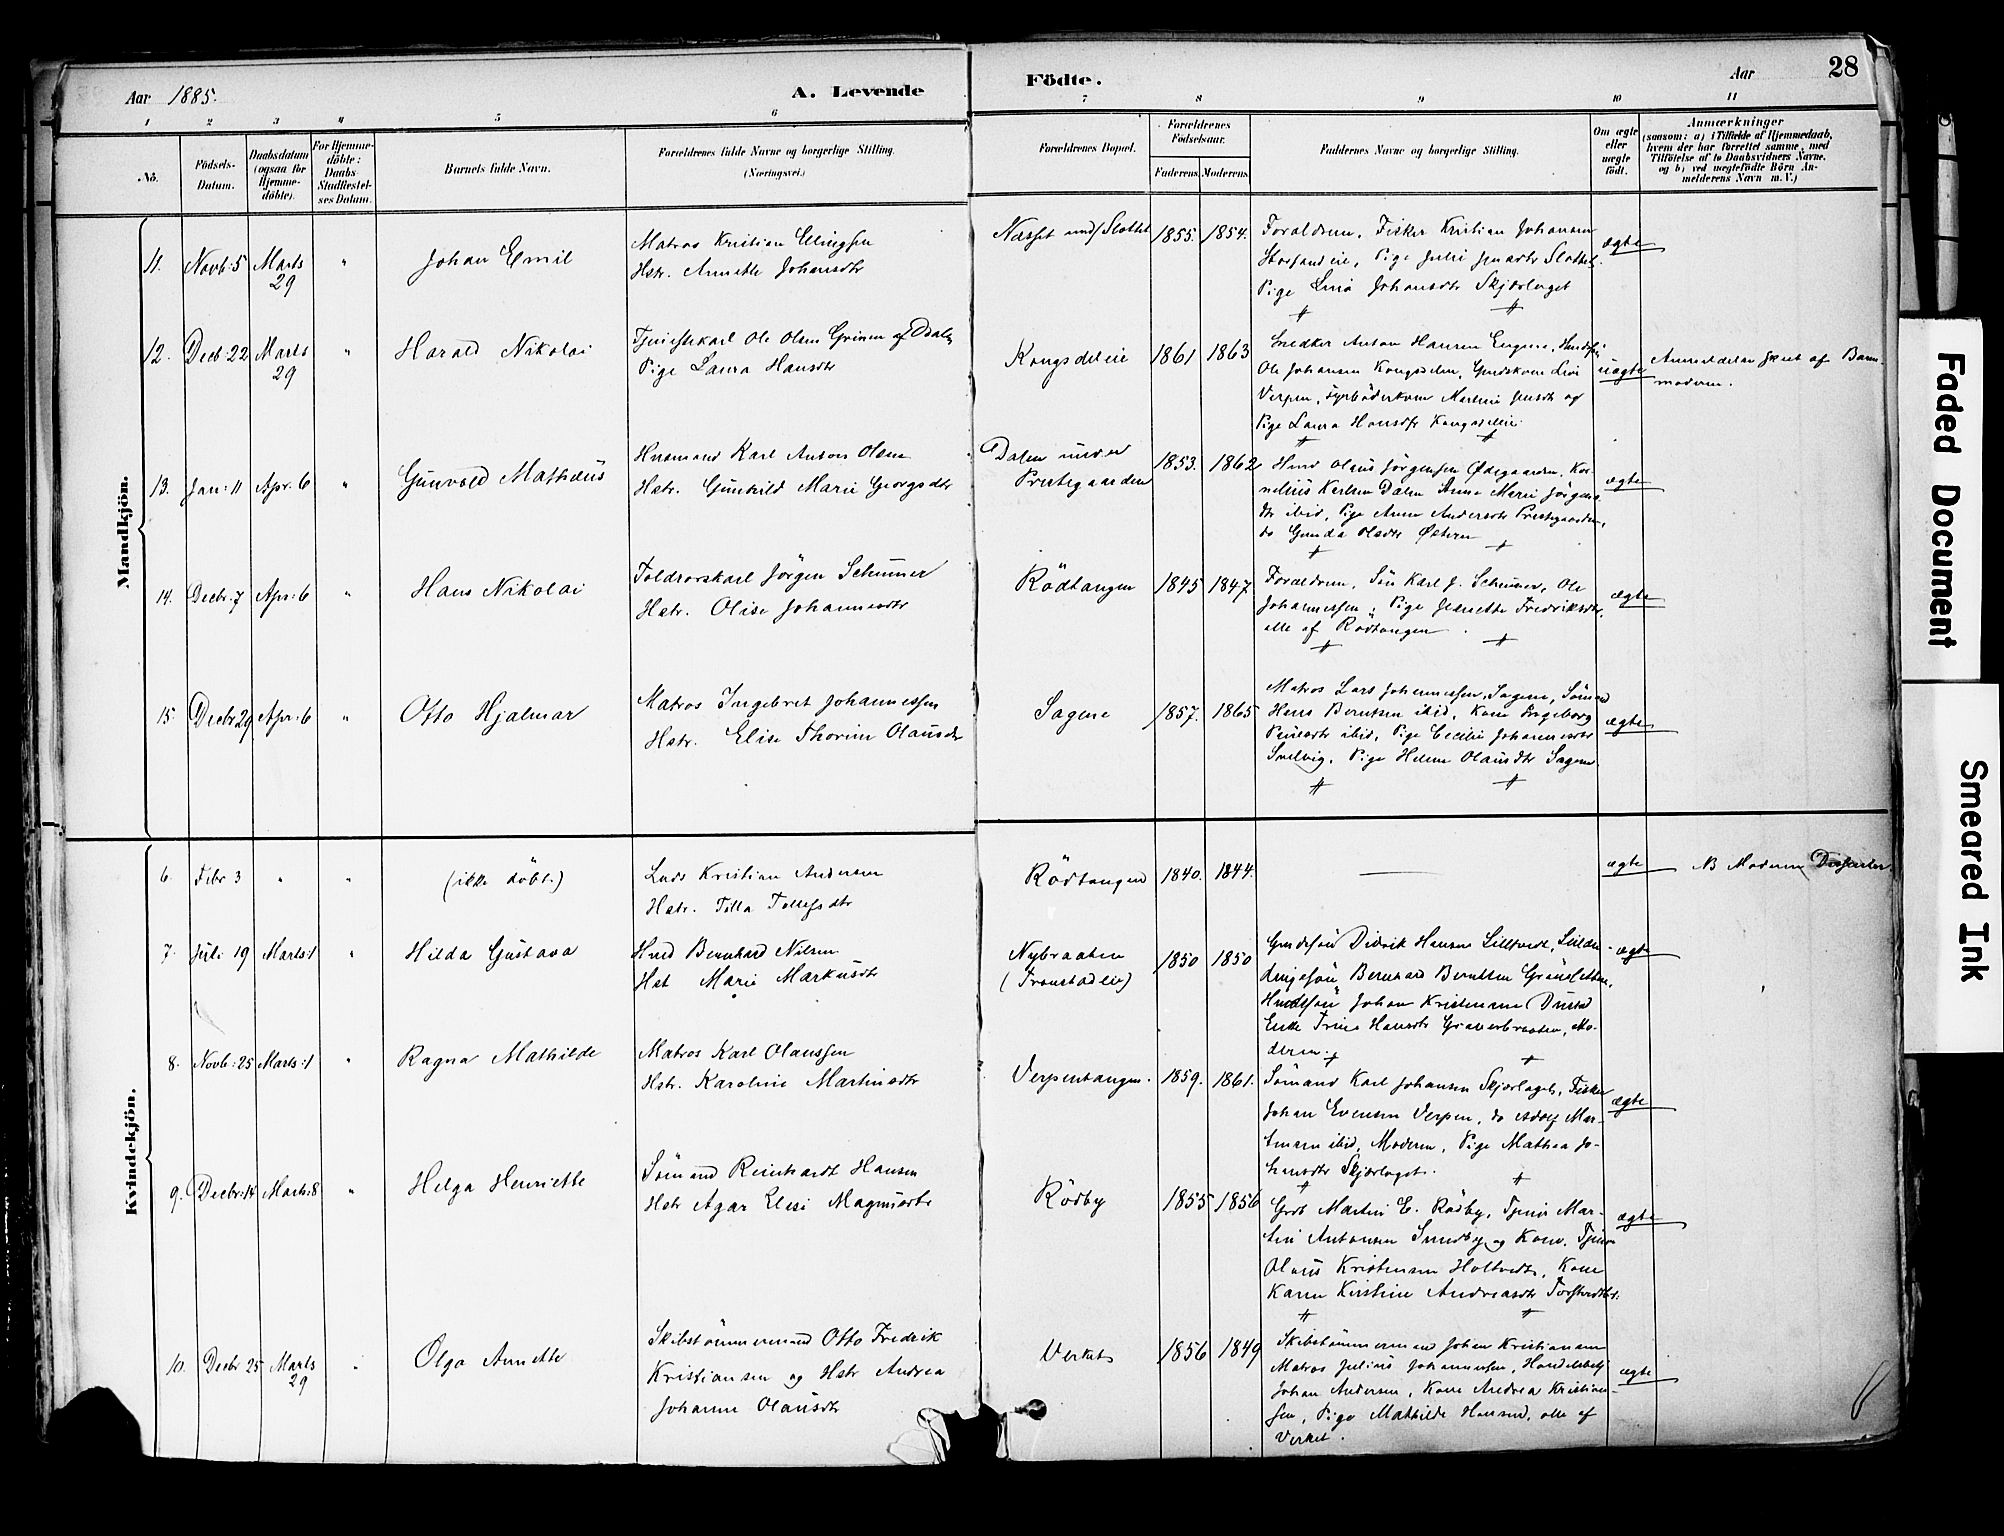 Aar 1885.
A. Levende
Födte.
Aar
28
1 2 3 4 5 6 7 8 9 10 11
No.
Födsels-Datum.
Daabsdatum (ogsaa for Hjemmedöbte).
For Hjemmedöbte: Daabs-Stadfæstelses Datum.
Barnets fulde Navn.
Forældrenes fulde Navne og borgerlige Stilling.
(Næringsvei.)
Forældrenes Bopæl.
Forældrenes Födselsaar.
Faderens. Moderens.
Faddernes Navne og borgerlige Stilling.
Om ægte eller uægte födt.
Anmærkninger
(saasom: a) i Tilfælde af Hjemmedaab, hvem der har forrettet samme, med Tilföielse af to Daabsvidners Navne, og b) ved uægtefödte Börn Anmelderens Navn m. V.)
Mandkjön.
11. Novb: 5 Marts 29 " Johan Emil
Matros Kristian Ellingsen
Hstr. Annette Johansdtr
Næsset und/Slottet 1855. 1854.
Forældrene, Fisker Kristian Johansen
Storsandeie, Pige Julie Jensdtr Slottet,
Pige Lina Johansdtr Skjærlaget
ægte
12. Decb: 22 Marts 29 " Harald Nikolai
Tjenestekarl Ole Olsen Grinen af Dale
Pige Laura Hansdtr
Kongsdeleie 1861 1863
Snedker Anton Hansen Engene, Husdsøn
Ole Johansen Kongsdelen, Grdskone Lise
Verpen, Fyrböderkone Martine Jensdtr og
Pige Laura Hansdtr Kongsdeleie.
uægte
Anmeldelse skeet af Barnemoderen.
13. Jan: 11 Apr: 6 " Gunvald Mathæus
Husmand Karl Anton Olsen
Hstr. Gunhild Marie Georgsdtr
Dalen under Prestegaarden 1853. 1862
Husmd Olaus Jörgensen Ødegaarden, Kornelius
Karlsen Dalen Anne Marie Jörgensdtr
ibid, Pige Anne Andersdtr Prestegaarden,
do Gunda Olsdtr Østern
ægte
14. Decbr: 7 Apr: 6 " Hans Nikolai
Toldrorskarl Jörgen Schumer
Hstr. Olise Johannesdtr
Rödtangen 1845 1847
Forældrene, Sön Karl J. Schumer, Ole
Johannessen, Pige Jeanette Fredriksdtr,
alle af Rödtangen.
ægte
15. Decbr 29 Apr: 6 " Otto Hjalmar
Matros Ingebret Johannessen
Hstr. Elise Thorine Olausdtr
Sagene 1857. 1865
Matros Lars Johannessen, Sagene, Sömand
Hans Berntsen ibid, Kone Ingeborg
ibid, Pige Cecilie Johannesdtr
Svelvig, Pige Helene Olausdtr Sagene.
ægte
Kvindekjön.
6. Febr 3 " " (ikke döbt.)
Lods Kristian Andersen
Hstr. Tilla Tollefsdtr
Rödtangen 1840. 1844.
ægte
NB Moderen Dissenter
7. Juli 19 Marts: 1 " Hilda Gustava
Husmd Bernhard Nilsen
Hst Marie Markusdtr
Nybraaten (Tronstadeie) 1850 1850
Grdesön Didrik Hansen Lilltvedt,
Bernhard Berntsen
Husmdssön Johan Kristensen
Enke Trine Hansdtr Graverbraaten, Moderen.
ægte
8. Novb: 25 Marts: 1 " Ragna Mathilde
Matros Karl Olaussen
Hstr. Karoline Martinsdtr
Verpentangen. 1859. 1861.
Sömand Karl Johansen Skjærlaget, Fisker
Johan Evensen Verpen, do Adolf Martinsen
ibid, Moderen, Pige Mathea Johansdtr
Skjærlaget.
ægte
9. Decbr: 14 Marts: 8 " Helga Henriette
Sömand Reinhardt Hansen
Hstr Agar Elise Magnusdtr
Rödby 1855 1856
Grdb Martin E. Rödby, Tjener Martin
Antonsen Sundby og Kone. Tjener
Olaus Kristensen Holtvedt, Kone
Karen Kirstine Andreasdtr Torstvedt.
ægte
10. Decbr 25 Marts 29 " Olga Annette
Skibstömmermand Otto Fredrik
Kristiansen og Hstr Andrea
Johanne Olausdtr
Verket 1856 1849
Skibstömmermand Johan Kristiansen
Matros Julius Johannessen, Handelsbetj
Johan Andersen, Kone Andrea Kristiansen,
Pige Mathilde Hansen, alle af
Verket.
ægte
Faded Document
Smeared Ink